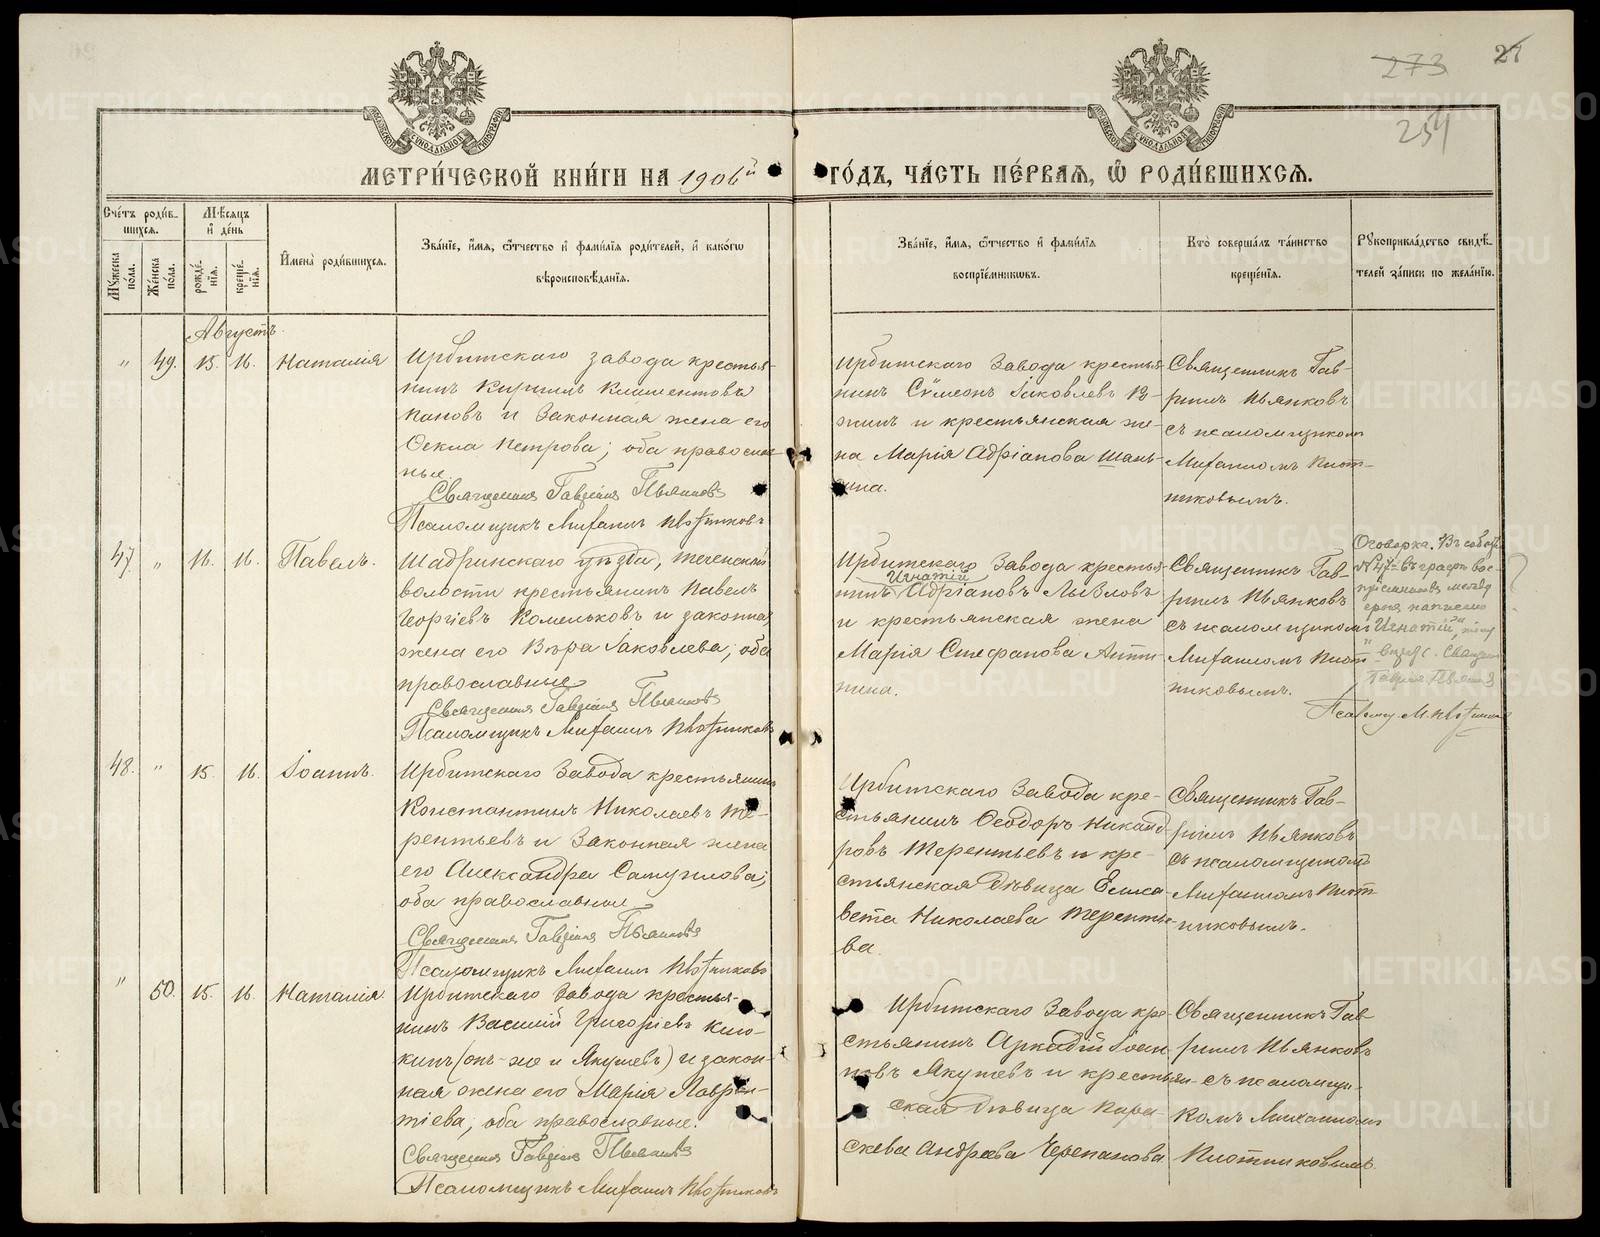 273
27
254
МЕТРИ́ЧЕСКОЙ КНИ́ГИ НА 1906й ГО́ДЪ, ЧА́СТЬ ПЕ́РВАЯ, Ѡ РОДИ́ВШИХСЯ.
Сче́тъ роди́в-
шихся.
Му́жеска по́ла.
Же́нска по́ла.
Мѣ́сяцъ и҆ де́нь
рожде́-
нїя.
креще́-
нїя.
И҆мена̀ роди́вшихся.
Зва́нїе, и҆́мя, ѻ҆́тчество и҆ фами́лїя роди́телей, и҆ како́гѡ
вѣроисповѣ́данїя.
Зва́нїе, и҆́мя, ѻ҆́тчество и҆ фами́лїя
воспрїе́мникѡвъ.
Кто̀ соверша́лъ та́инство
креще́нїя.
Рꙋкоприкла́дство свидѣ́-
телей за́писи по жела́нїю.
Августъ.
" 49. 15. 16. Наталія
Ирбитскаго завода крестья-
нинъ Кириллъ Климентовъ
Пановъ и законная жена его
Ѳекла Петрова; оба православ-
ные
Священникъ Гавріилъ Пьянковъ
Псаломщикъ Михаилъ Плотниковъ
Ирбитскаго Завода крестья-
нинъ Сѵмеонъ Іаковлевъ
и крестьянская же-
на Марія Адріанова Шань-
гина.
Священникъ Гав-
ріилъ Пьянковъ
съ псаломщикомъ
Михаиломъ Плот-
никовымъ.
47 " 16. 16. Павелъ.
Шадринскаго уѣзда, Теченской
волости крестьянинъ Павелъ
Георгіевъ Комельковъ и законная
жена его Вѣра Іаковлева; оба
православные
Священникъ Гавріилъ Пьянковъ
Псаломщикъ Михаилъ Плотниковъ
Ирбитскаго Завода крестья-
Игнатій
нинъ Адріановъ Лызловъ
и крестьянская жена
Марія Стефанова Анти-
пина.
Священникъ Гав-
ріилъ Пьянковъ
съ псаломщикомъ
Михаиломъ Плот-
никовымъ.
Оговорка. Въ
№ 47 въ графѣ вос-
пріемниковъ между
строкъ написано
"Игнатій",
Священ.
Гавріилъ Пьянковъ
Псаломщ. М. Плотниковъ
48. " 15. 16. Іоаннъ.
Ирбитскаго Завода крестьянинъ
Константинъ Николаевъ Те-
рентьевъ и Законная жена
его Александра Самуилова;
оба православные
Священникъ Гавріилъ Пьянковъ
Псаломщикъ Михаилъ Плотниковъ
Ирбитскаго Завода кре-
стьянинъ Ѳеодоръ Никанд-
ровъ Терентьевъ и кре-
стьянская дѣвица Елиса-
вета Николаева Терентье-
ва.
Священникъ Гав-
ріилъ Пьянковъ
съ псаломщикомъ
Михаиломъ Плот-
никовымъ.
" 50. 15. 16. Наталія.
Ирбитскаго Завода крестья-
нинъ Василій Григоріевъ Клю-
кинъ (онъ-же и Якушевъ) и закон-
ная жена его Марія Лаврен-
тіева; оба православные.
Священникъ Гавріилъ Пьянковъ
Псаломщикъ Михаилъ Плотниковъ
Ирбитскаго Завода кре-
стьянинъ Аркадій Іоан-
новъ Якушевъ и крестьян-
ская дѣвица Пара-
скева Андреева Черепанова
Священникъ Гав-
ріилъ Пьянковъ
съ псаломщи-
комъ Михаиломъ
Плотниковымъ.
METRIKI.GASO-URAL.RU